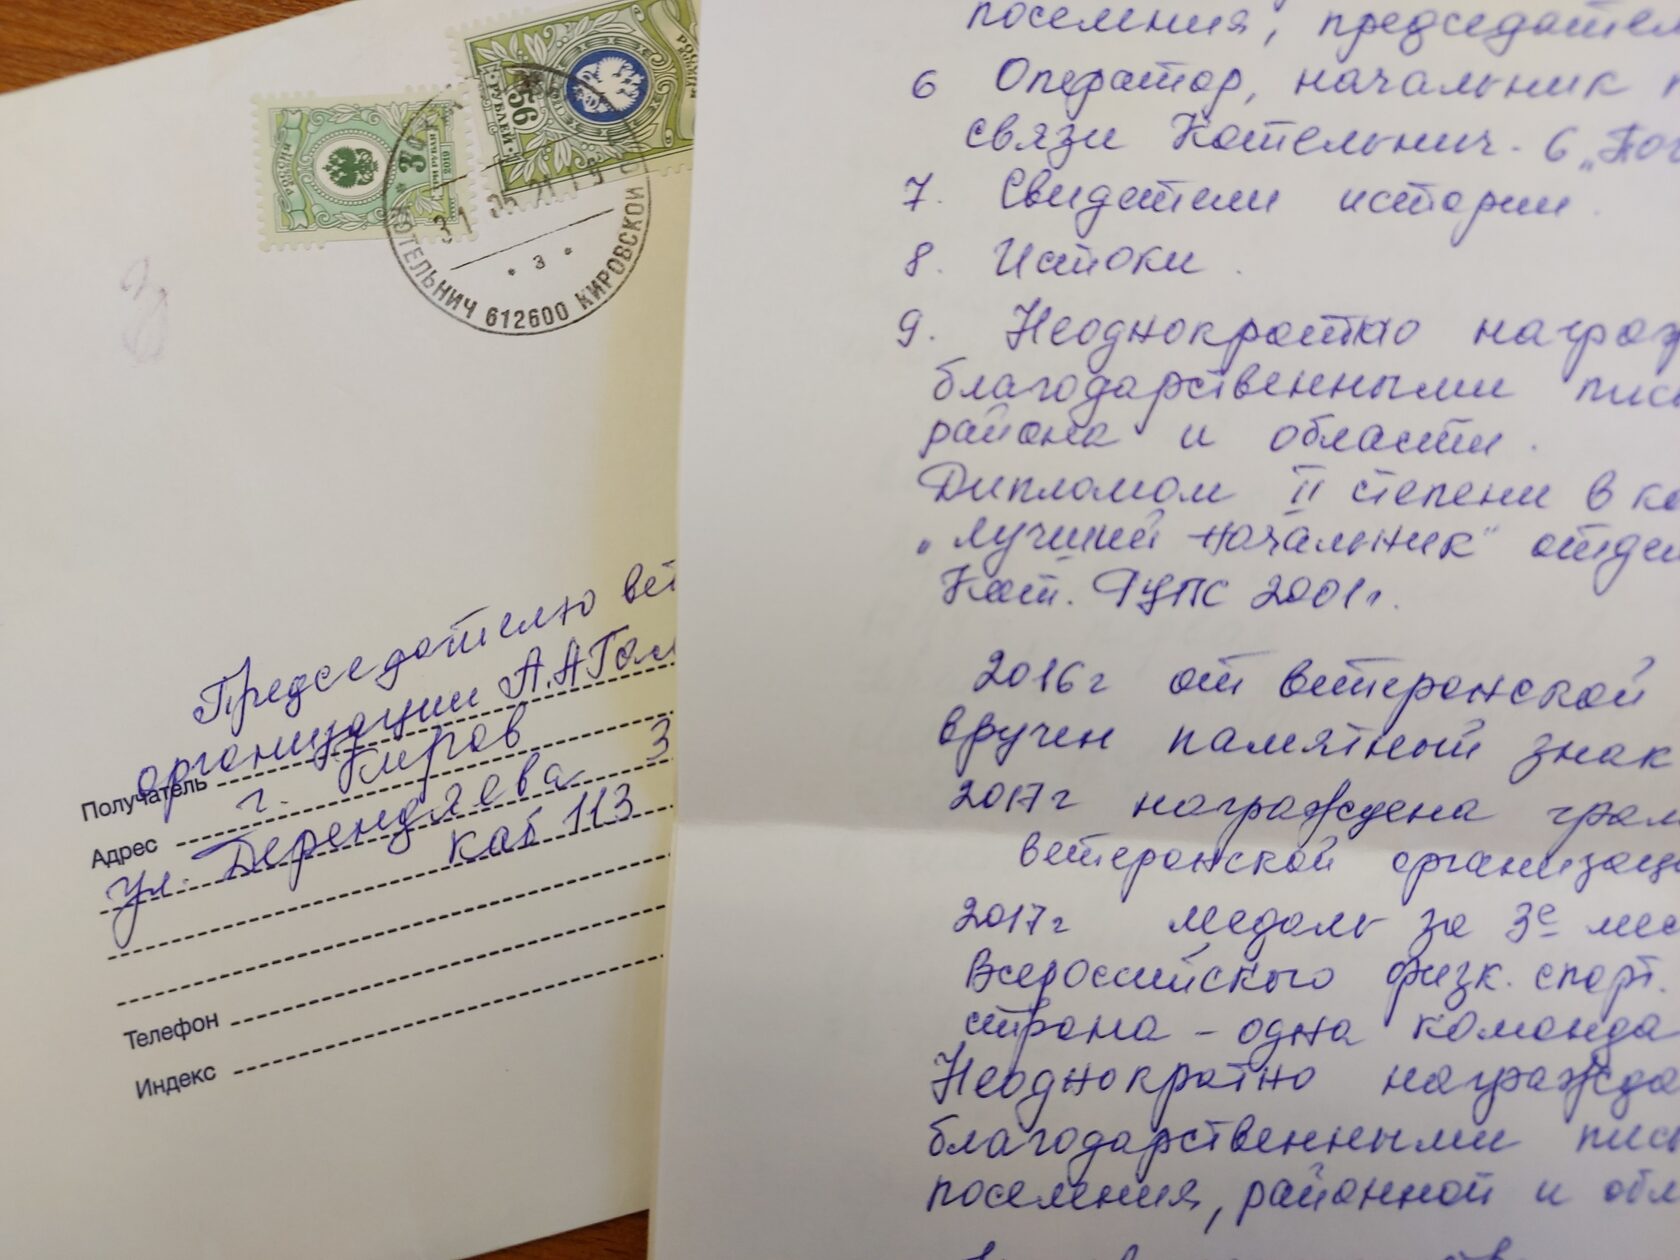 РОССИЯ
3
ТРИ РУБЛЯ 2019
56
РУБЛЕЙ
КОТЕЛЬНИЧ 612600 КИРОВСКОЙ
* 3 *
Председателю вет
организации А.А Гол
Получатель
г. Киров
Адрес
ул. Дерендяева 3
каб 113
Телефон
Индекс
поселения, председател
6 Оператор, начальник
связи Котельнич. 6 „Поч
7. Свидетели истории.
8. Истоки.
9. Неоднократно награж
благодарственными пис
района и области.
Дипломом II степени в ко
„Лучший начальник" отде
Кот. ФУПС 2001г.
2016г от ветеранской
вручен памятный знак
2017г награждена грам
ветеранской организац
2017г медаль за 3е мес
Всероссийского физк. спорт.
страна - одна команда
Неоднократно награжда
благодарственными пис
поселения, районной и обл